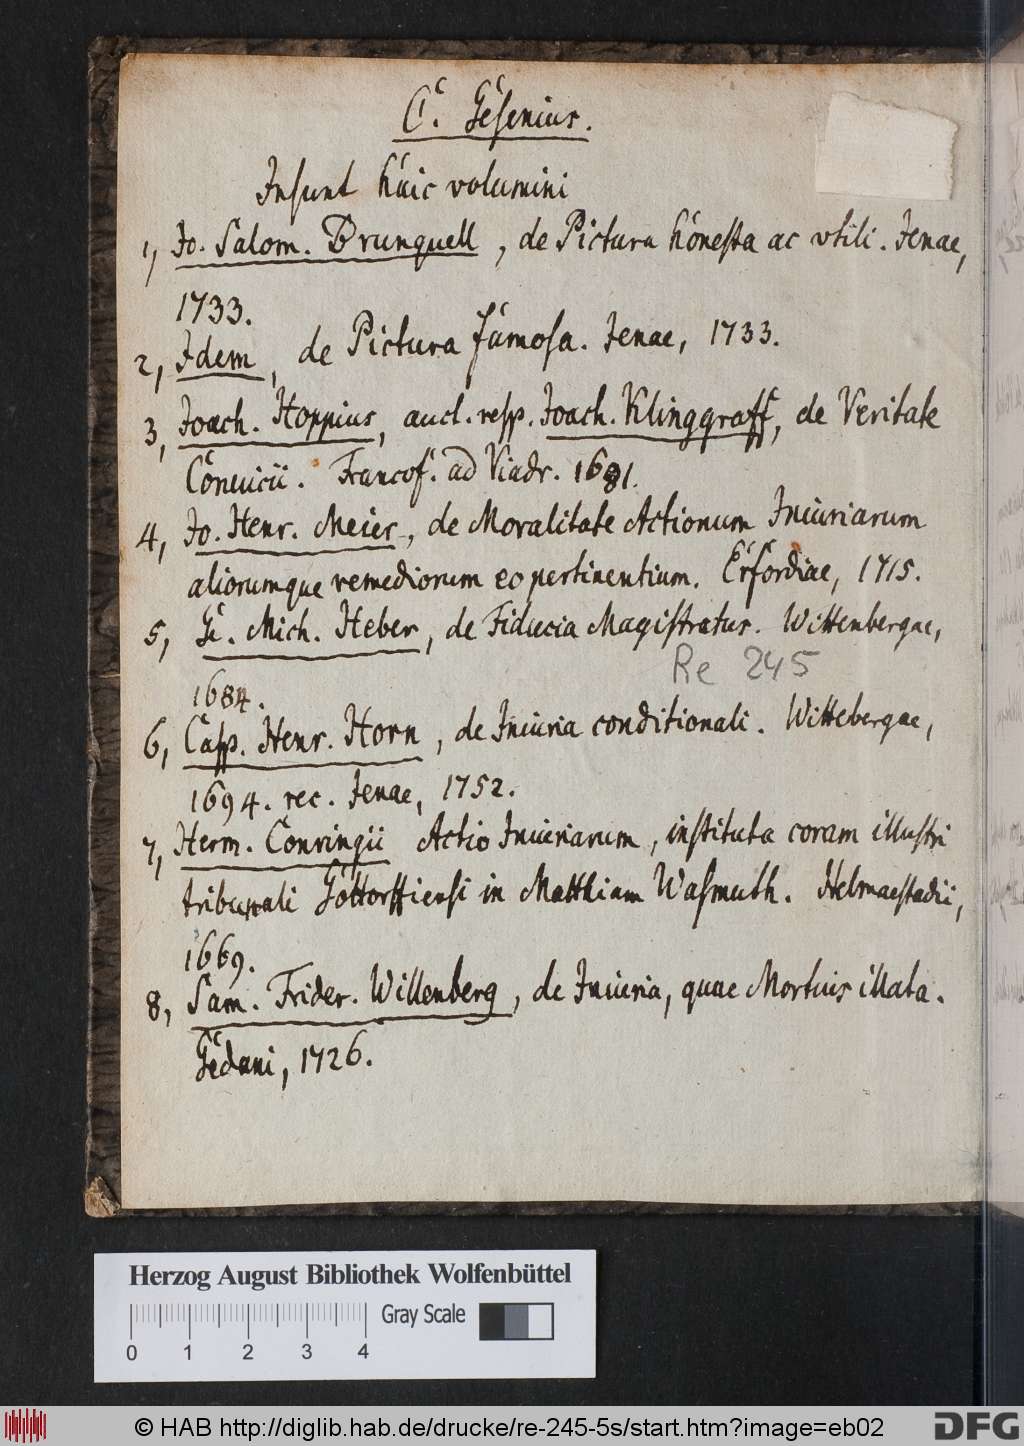 C. Gesenius.
Insunt huic volumini
1, Jo. Salom. Brunquell, de Pictura honesta ac vtili. Jenae,
1733.
2, Idem, de Pictura famosa. Jenae, 1733.
3, Joach. Hoppius, auct. resp. Joach. Klinggraff, de Veritate
Conuicii. Francof. ad Viadr. 1681.
4, Jo. Henr. Meier, de Moralitate Actionum Iniuriarum
aliorumque remediorum eo pertinentium. Erfordiae, 1715.
5, G. Mich. Heber, de Fiducia Magistratus. Wittenbergae,
Re 245
1684.
6, Casp. Henr. Horn, de Iniuria conditionali. Wittebergae,
1694. rec. Jenae, 1752.
7, Herm. Conringii Actio Iniuriarum, instituta coram illustri
tribunali Gottorffiensi in Matthiam Wasmuth. Helmaestadii,
1669.
8, Sam. Frider. Willenberg, de Iniuria, quae Mortuis illata.
Gedani, 1726.
Herzog August Bibliothek Wolfenbüttel
Gray Scale
0 1 2 3 4
© HAB http://diglib.hab.de/drucke/re-245-5s/start.htm?image=eb02
DFG